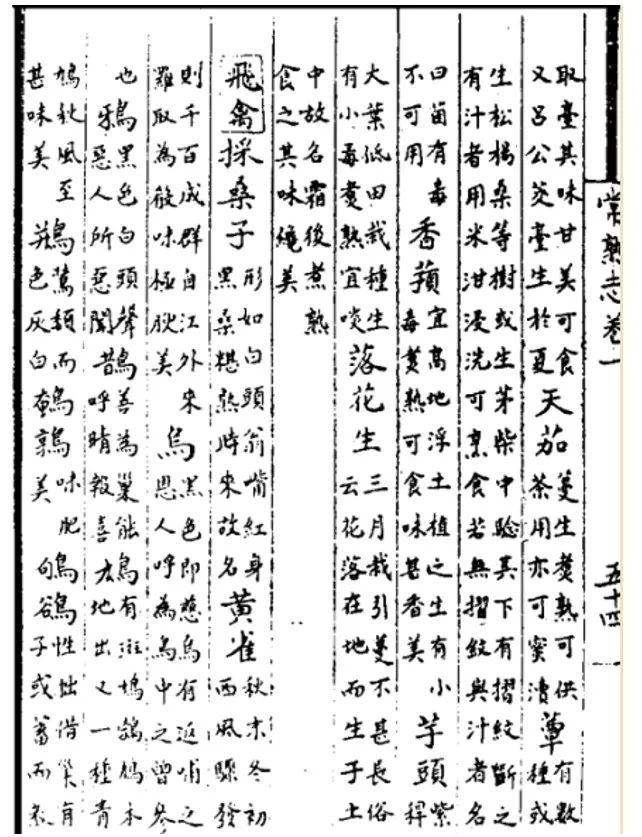 常熟志卷一
五十四
取臺其味甘美可食
又呂公茭臺生於夏
天茄
蔓生煑熟可供
茶用亦可蜜漬
蕈
有數
種或
生松楊桑等樹或生茅柴中驗其下有摺紋斷之
有汁者用米泔浸洗可烹食若無摺紋與汁者名
曰菌有毒
不可用
香
宜高地浮土植之生有小
毒煑熟可食味甚香美
芋頭
紫
稈
大葉低田栽種生
有小毒煑熟宜啖
落花生
三月栽引蔓不甚長俗
云花落在地而生子土
中故名霜後煮熟
食之其味絕美
飛禽
採桑子
形如白頭翁嘴紅身
黑桑椹熟時來故名
黃雀
秋末冬初
西風驟發
則千百成群自江外來
羅取為餚味極腴美
烏
黑色即慈烏有返哺之
恩人呼為烏中之曾參
也
鴉
黑色白頭聲
惡人所惡聞
鵲
善為巢能
呼晴報喜
鳩
有斑鳩鵓鳩本
地出又一種青
鳩秋風至
甚味美
類而
色灰白
鵪鶉
味肥
美
鴝鵒
性拙借巢有
子或蓄而